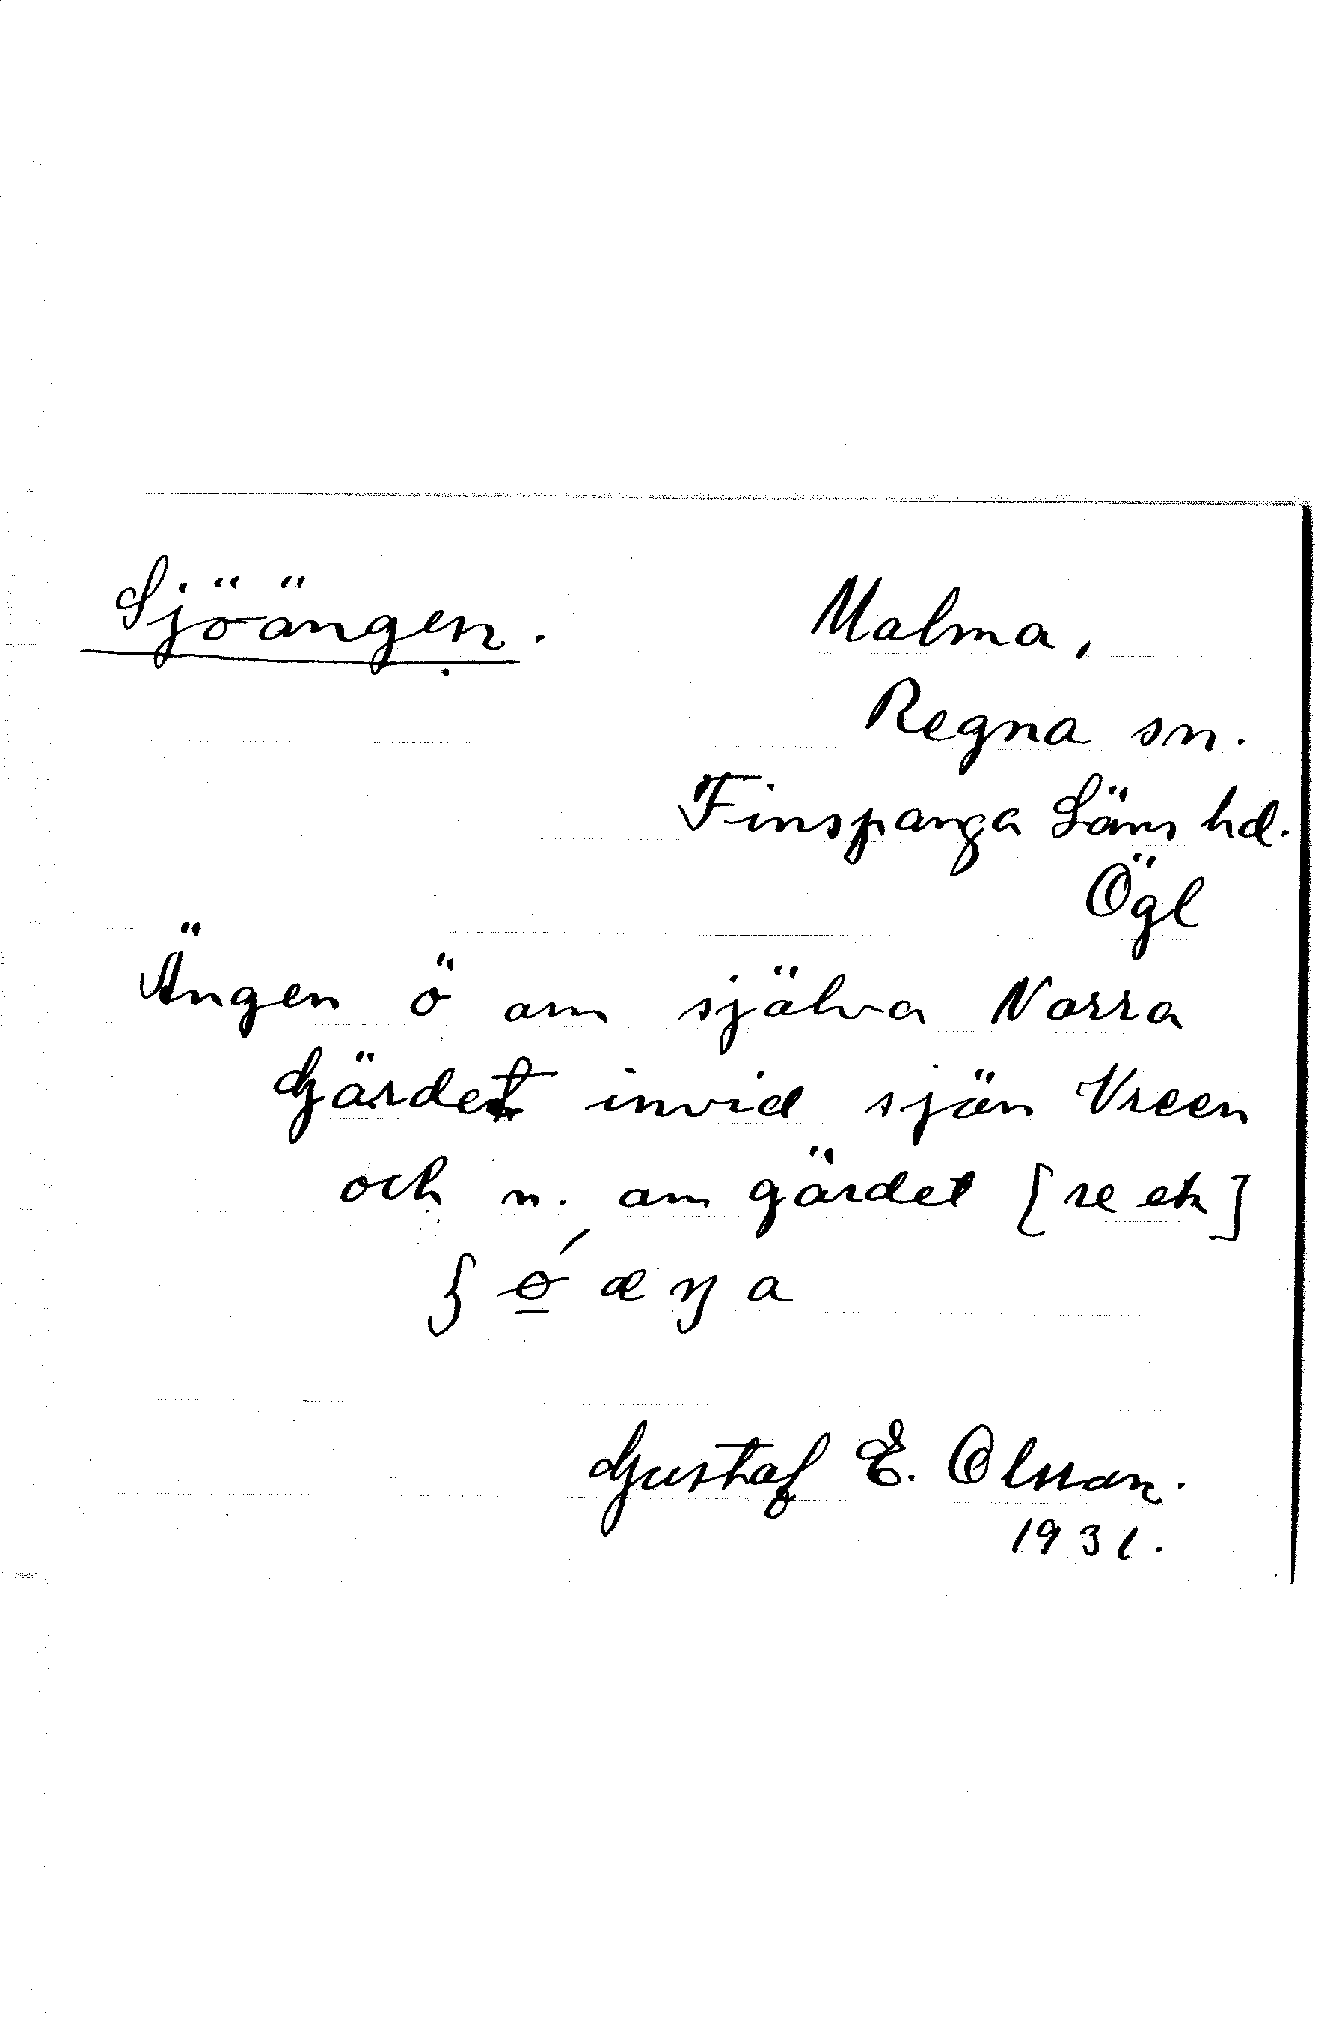 Sjöängen. Malma,
Regna sn.
Finspånga Läns hd.
Ögl
Ängen ö om själva Norra
Gärdet invid sjön Vreen
och n. om gärdet [se ek]
ʃ ǿ æ ŋ a
Gustaf E. Olsson.
1931.